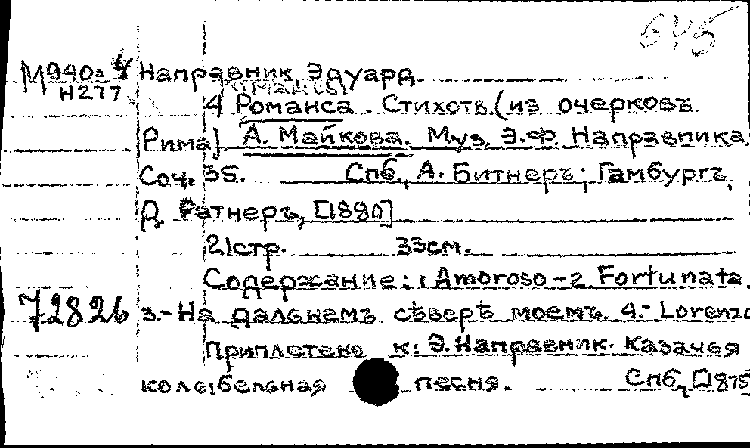 645
М940а4 Направник, Эдуард.
Н277 Романсы
4 Романса. Стихотв. (из очерковъ
Рима) А. Майкова. Муз. Э.Ф. Направника
Соч. 35. Спб., А. Битнеръ; Гамбургъ,
Д. Ратнеръ, [1880]
21стр. 33см.
Содержание: 1 Amoroso - 2 Fortunata.
72826 3.- На дальнемъ сѣверѣ моемъ. 4.- Lorenzo
Приплетено к: Э. Направник. Казачья
колыбельная песня. Спб, [1875